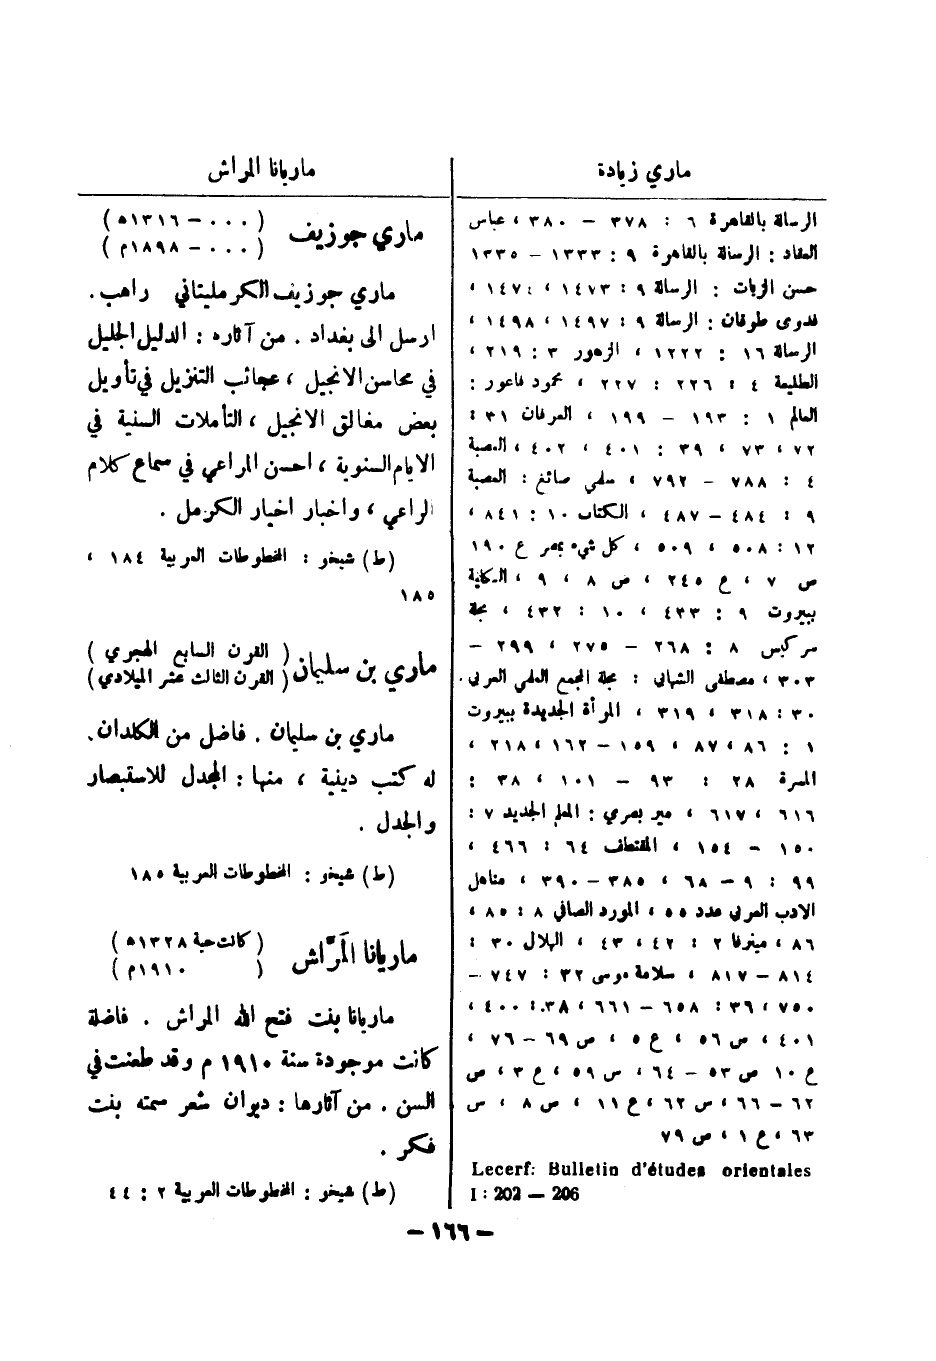 ماري زيادة
الرسالة بالقاهرة ٦ : ٣٧٨ – ٣٨٠ ، عباس
العقاد : الرسالة بالقاهرة ٩ : ١٣٣٣ – ١٣٣٥
حسن الزيات : الرسالة ٩ : ١٤٧٣ ، ١٤٧٤ ،
فدوى طوقان : الرسالة ٩ : ١٤٩٧ ، ١٤٩٨ ،
الرسالة ١٦ : ١٢٢٢ ، الزهور ٣ : ٢١٩ ،
الطليعة ٤ : ٢٢٦ : ٢٢٧ ، محمود فاعور :
العالم ١ : ١٩٣ – ١٩٩ ، العرفان ٣١ :
٧٢ ، ٧٣ ، ٣٩ : ٤٠١ ، ٤٠٢ ، العصبة
٤ : ٧٨٨ – ٧٩٢ ، سلمى صائغ : العصبة
٩ : ٤٨٤ – ٤٨٧ ، الكتاب ١٠ : ٨٤١ ،
١٢ : ٥٠٨ ، ٥٠٩ ، كل شيء بمصر ع ١٩٠
ص ٧ ، ع ٢٤٥ ، ص ٨ ، ٩ ، الكلية
ببيروت ٩ : ٤٣٣ ، ١٠ : ٤٣٢ ، مجلة
سركيس ٨ : ٢٦٨ – ٢٧٥ ، ٢٩٩ –
٣٠٣ ، مصطفى الشهابي : مجلة المجمع العلمي العربي
٣٠ : ٣١٨ ، ٣١٩ ، المرأة الجديدة ببيروت
١ : ٨٦ ، ٨٧ ، ١٥٩ – ١٦٢ ، ٢١٨ ،
المسرة ٢٨ : ٩٣ – ١٠١ ، ٣٨ :
٦١٦ ، ٦١٧ ، مير بصري : المعلم الجديد ٧ :
١٥٠ – ١٥٤ ، المقتطف ٦٤ : ٤٦٦ ،
٩٩ : ٩ – ٦٨ ، ٣٨٥ – ٣٩٠ ، مناهل
الادب العربي عدد ٥٥ ، المورد الصافي ٨ : ٨٥ ،
٨٦ ، مينرفا ٢ : ٤٢ ، ٤٣ ، الهلال ٣٠ :
٨١٤ – ٨١٧ ، سلامة موسى ٣٢ : ٧٤٧ –
٧٥٠ ، ٣٦ : ٦٥٨ – ٦٦١ ، ٣٨ : ٤٠٠ ،
٤٠١ ، س ٥٦ ، ع ٥ ، ص ٦٩ – ٧٦ ،
ع ١٠ ص ٥٣ – ٦٤ ، س ٥٩ ، ع ٣ ، ص
٦٢ – ٦٦ ، س ٦٢ ، ع ١١ ، ص ٨ ، س
٦٣ ، ع ١ ، ص ٧٩
Lecerf: Bulletin d'études orientales
I : 202 — 206
ماريانا المراش
ماري جوزيف ( ٠٠٠ – ١٣١٦ ه )
( ٠٠٠ – ١٨٩٨ م )
ماري جوزيف الكرمليتاني راهب .
ارسل الى بغداد . من آثاره : الدليل الجليل
في محاسن الانجيل ، عجائب التنزيل في تأويل
بعض مغالق الانجيل ، التأملات السنية في
الايام السنوية ، احسن المراعي في سماع كلام
الراعي ، واخبار اخيار الكرمل .
(ط) شيخو : المخطوطات العربية ١٨٤ ،
١٨٥
ماري بن سليمان ( القرن السابع الهجري )
( القرن الثالث عشر الميلادي )
ماري بن سليمان . فاضل من الكلدان .
له كتب دينية ، منها : المجدل للاستبصار
والجدل .
(ط) شيخو : المخطوطات العربية ١٨٥
ماريانا المَرَّاش ( كانت حية ١٣٢٨ ه )
( ١٩١٠ م )
ماريانا بنت فتح الله المراش . فاضلة
كانت موجودة سنة ١٩١٠ م وقد طعنت في
السن . من آثارها : ديوان شعر سمته بنت
فكر .
(ط) شيخو : المخطوطات العربية ٢ : ٤٤
– ١٦٦ –